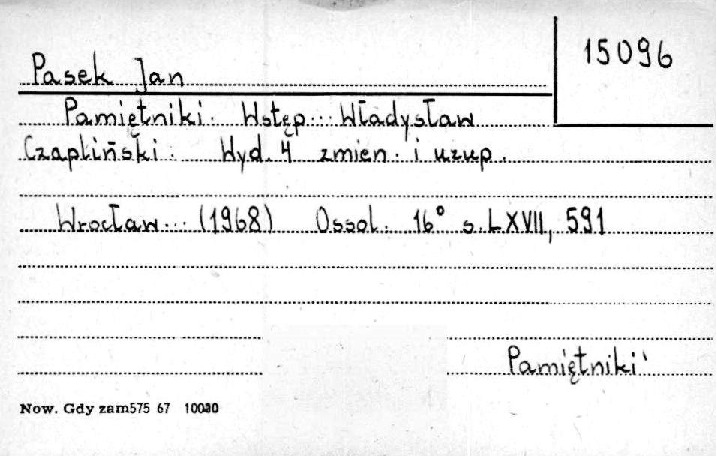 15096
Pasek Jan
Pamiętniki. Wstęp... Władysław
Czapliński. Wyd. 4 zmien. i uzup.
Wrocław... (1968) Ossol. 16° s. LXVII, 591
Pamiętniki
Now. Gdy zam 575 67 10000